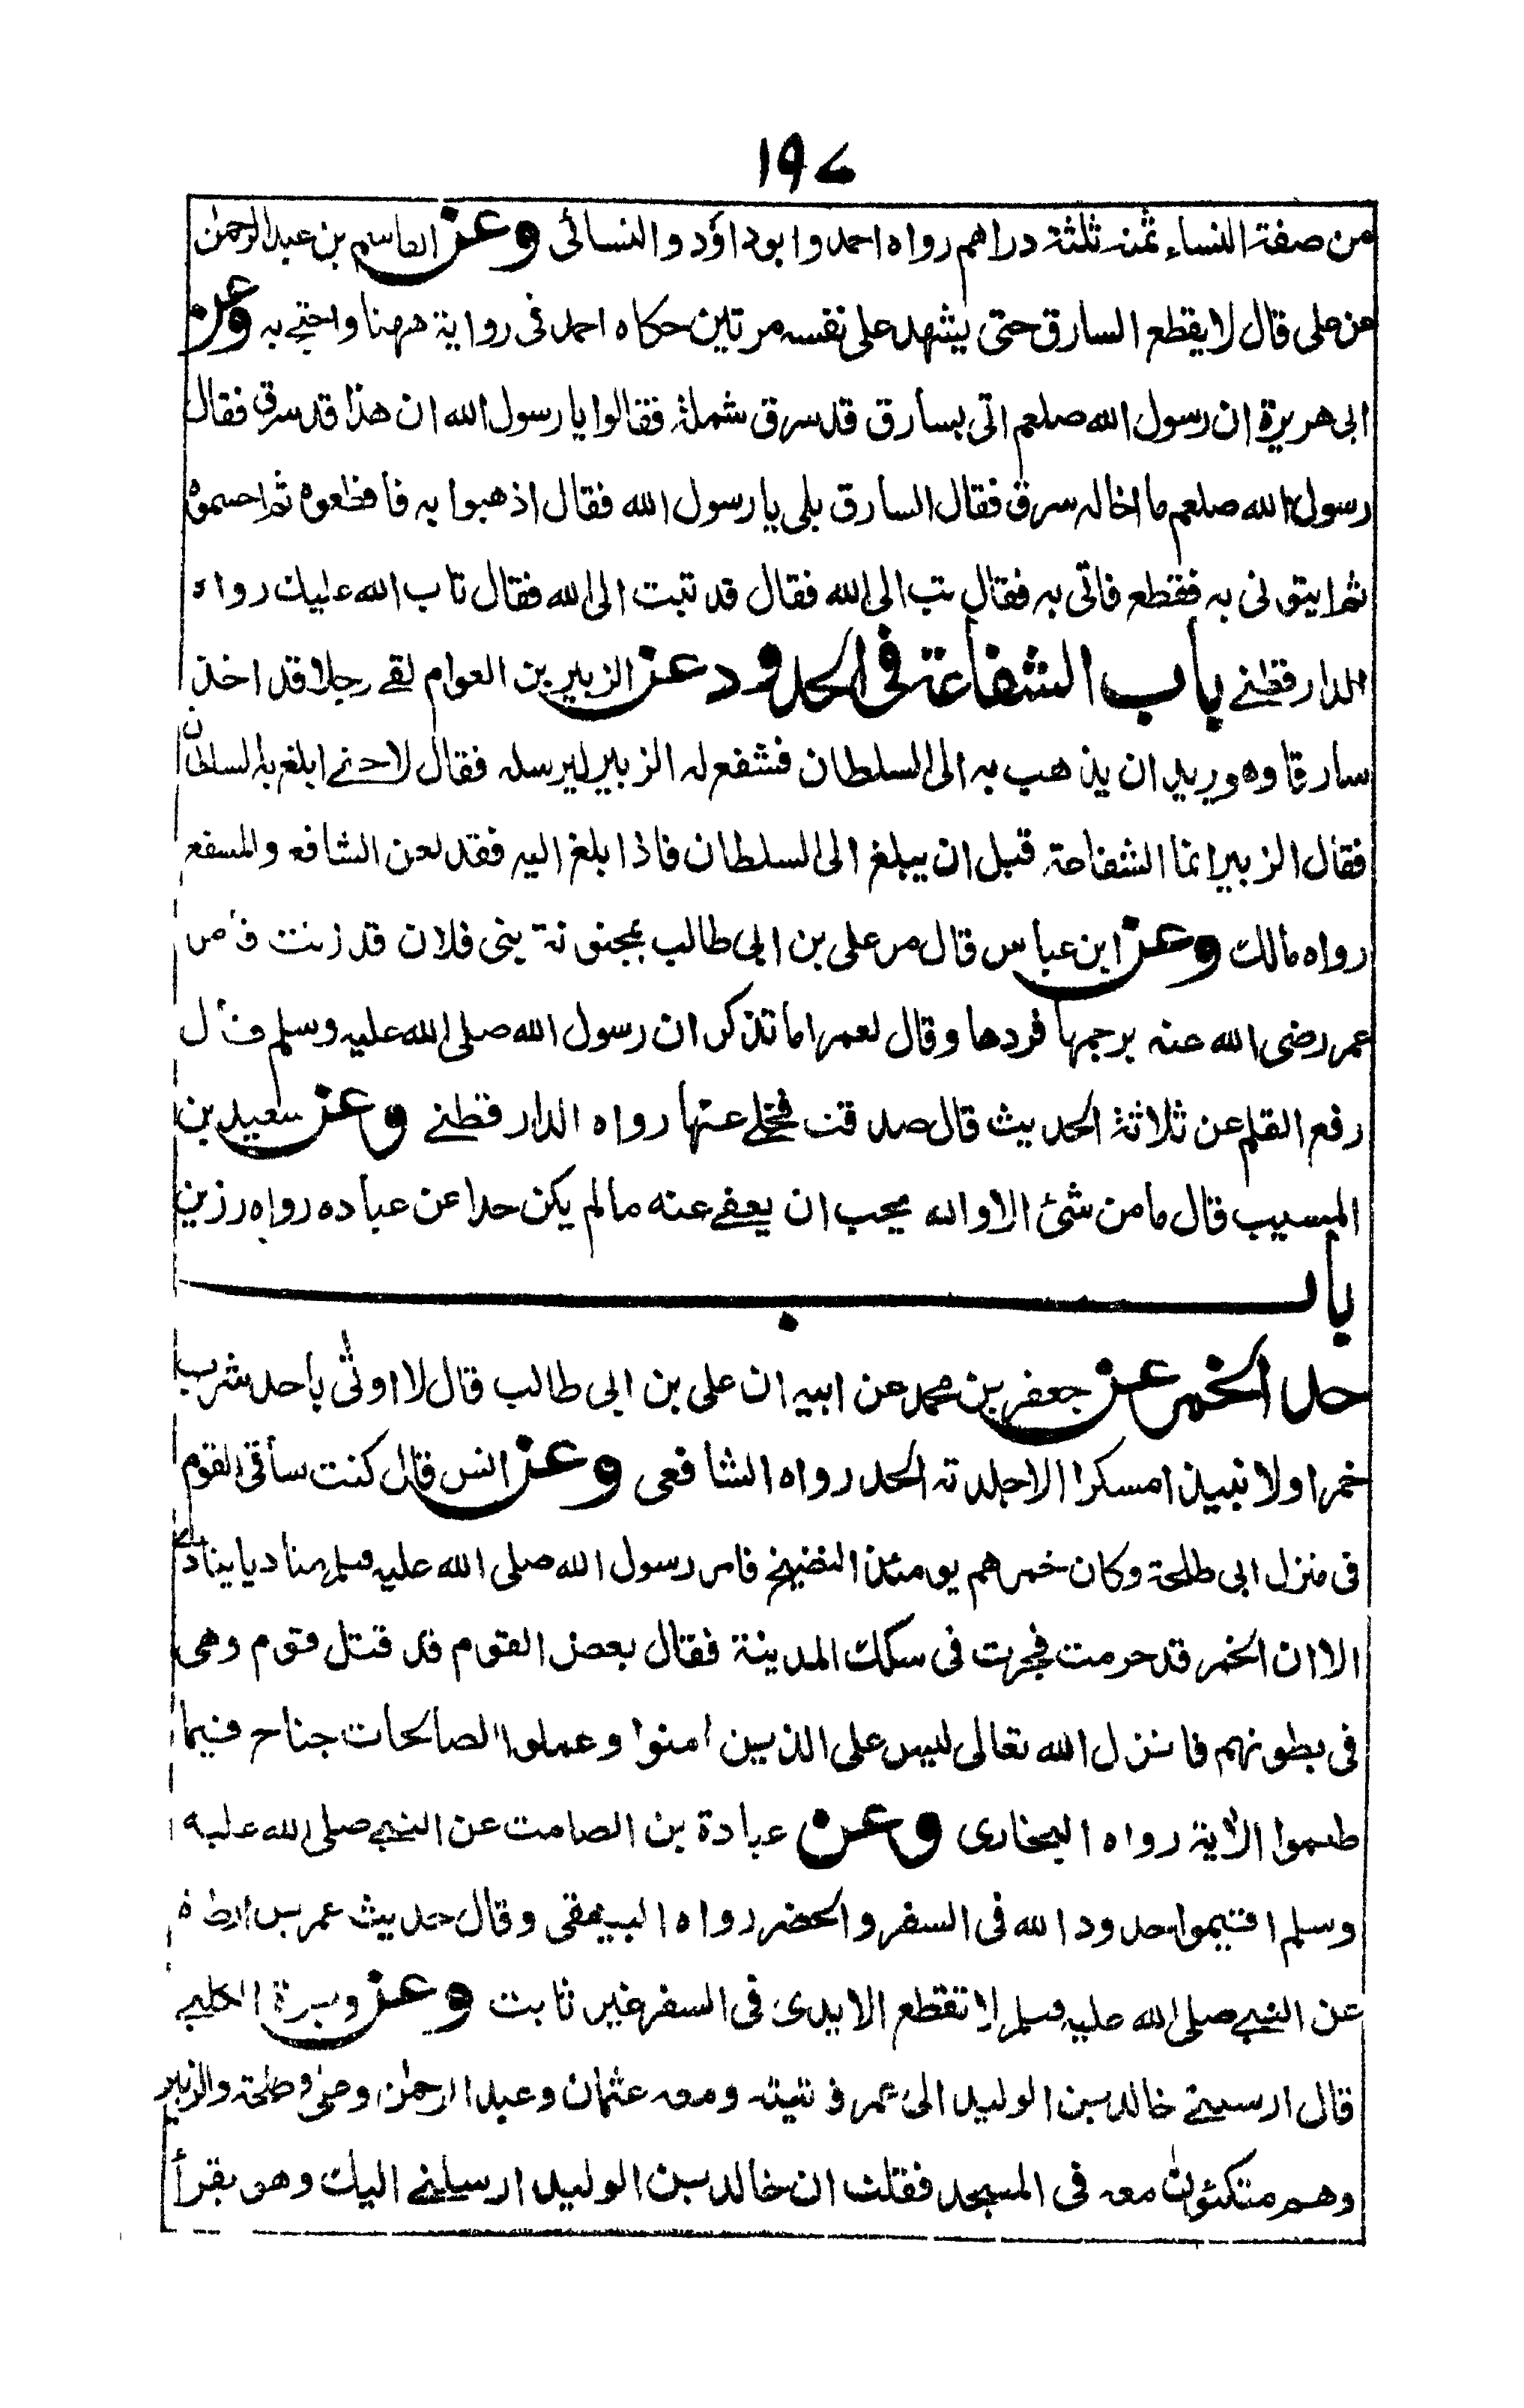 ١٩٧
من صفة النساء ثمنه ثلثة دراهم رواه احمد وابوداؤد والنسائى وعن القاسم بن عبدالرحمن
عن على قال لا يقطع السارق حتى يشهد على نفسه مرتين حكاه احمد فى رواية مهنا واحتج به وعن
ابى هريرة ان رسول الله صلعم اتى بسارق قد سرق شملة فقالوا يا رسول الله ان هذا قد سرق فقال
رسول الله صلعم ما اخاله سرق فقال السارق بلى يا رسول الله فقال اذهبوا به فاقطعوه ثم احسموه
ثم ايتونى به فقطع فاتى به فقال تب الى الله فقال قد تبت الى الله فقال تاب الله عليك رواه
الدارقطنے باب الشفاعة فى الحدود عن الزبير بن العوام لقے رجلا قد اخذ
سارقا وهو يريد ان يذهب به الى السلطان فشفع له الزبير ليرسله فقال لا حتے ابلغ به السلطان
فقال الزبير انما الشفاعة قبل ان يبلغ الى السلطان فاذا بلغ اليه فقد لعن الشافع والمشفع
رواه مالك وعن ابن عباس قال مر على بن ابى طالب بمجنونة بنى فلان قد زنت فامر
عمر رضى الله عنه برجمها فردها وقال لعمر اما تذكر ان رسول الله صلى الله عليه وسلم قال
رفع القلم عن ثلاثة الحديث قال صدقت فخلے عنها رواه الدارقطنے وعن سعيد بن
المسيب قال ما من شئ الا والله يحب ان يعفے عنه ما لم يكن حدا عن عباده رواه رزين
باب
حد الخمر عن جعفر بن محمد عن ابيه ان على بن ابى طالب قال لا اوتى باحد شرب
خمرا ولا نبيذا مسكرا الا جلدته الحد رواه الشافعى وعن انس قال كنت ساقى القوم
فى منزل ابى طلحة وكان خمرهم يومئذ الفضيخ فامر رسول الله صلى الله عليه وسلم مناديا ينادے
الا ان الخمر قد حرمت فجرت فى سكك المدينة فقال بعض القوم قد قتل قوم وهى
فى بطونهم فانزل الله تعالى ليس على الذين امنوا وعملوا الصالحات جناح فيما
طعموا الاية رواه البخارى وعن عبادة بن الصامت عن النبے صلى الله عليه
وسلم اقيموا حدود الله فى السفر والحضر رواه البيهقى وقال حديث عمر بن ارطاة
عن النبے صلى الله عليه وسلم لا تقطع الايدى فى السفر غير ثابت وعن وبرة الكلبے
قال ارسلنے خالد بن الوليد الى عمر فاتيته ومعه عثمان وعبد الرحمن وعلى وطلحة والزبير
وهم متكئون معه فى المسجد فقلت ان خالد بن الوليد ارسلنے اليك وهو يقرأ